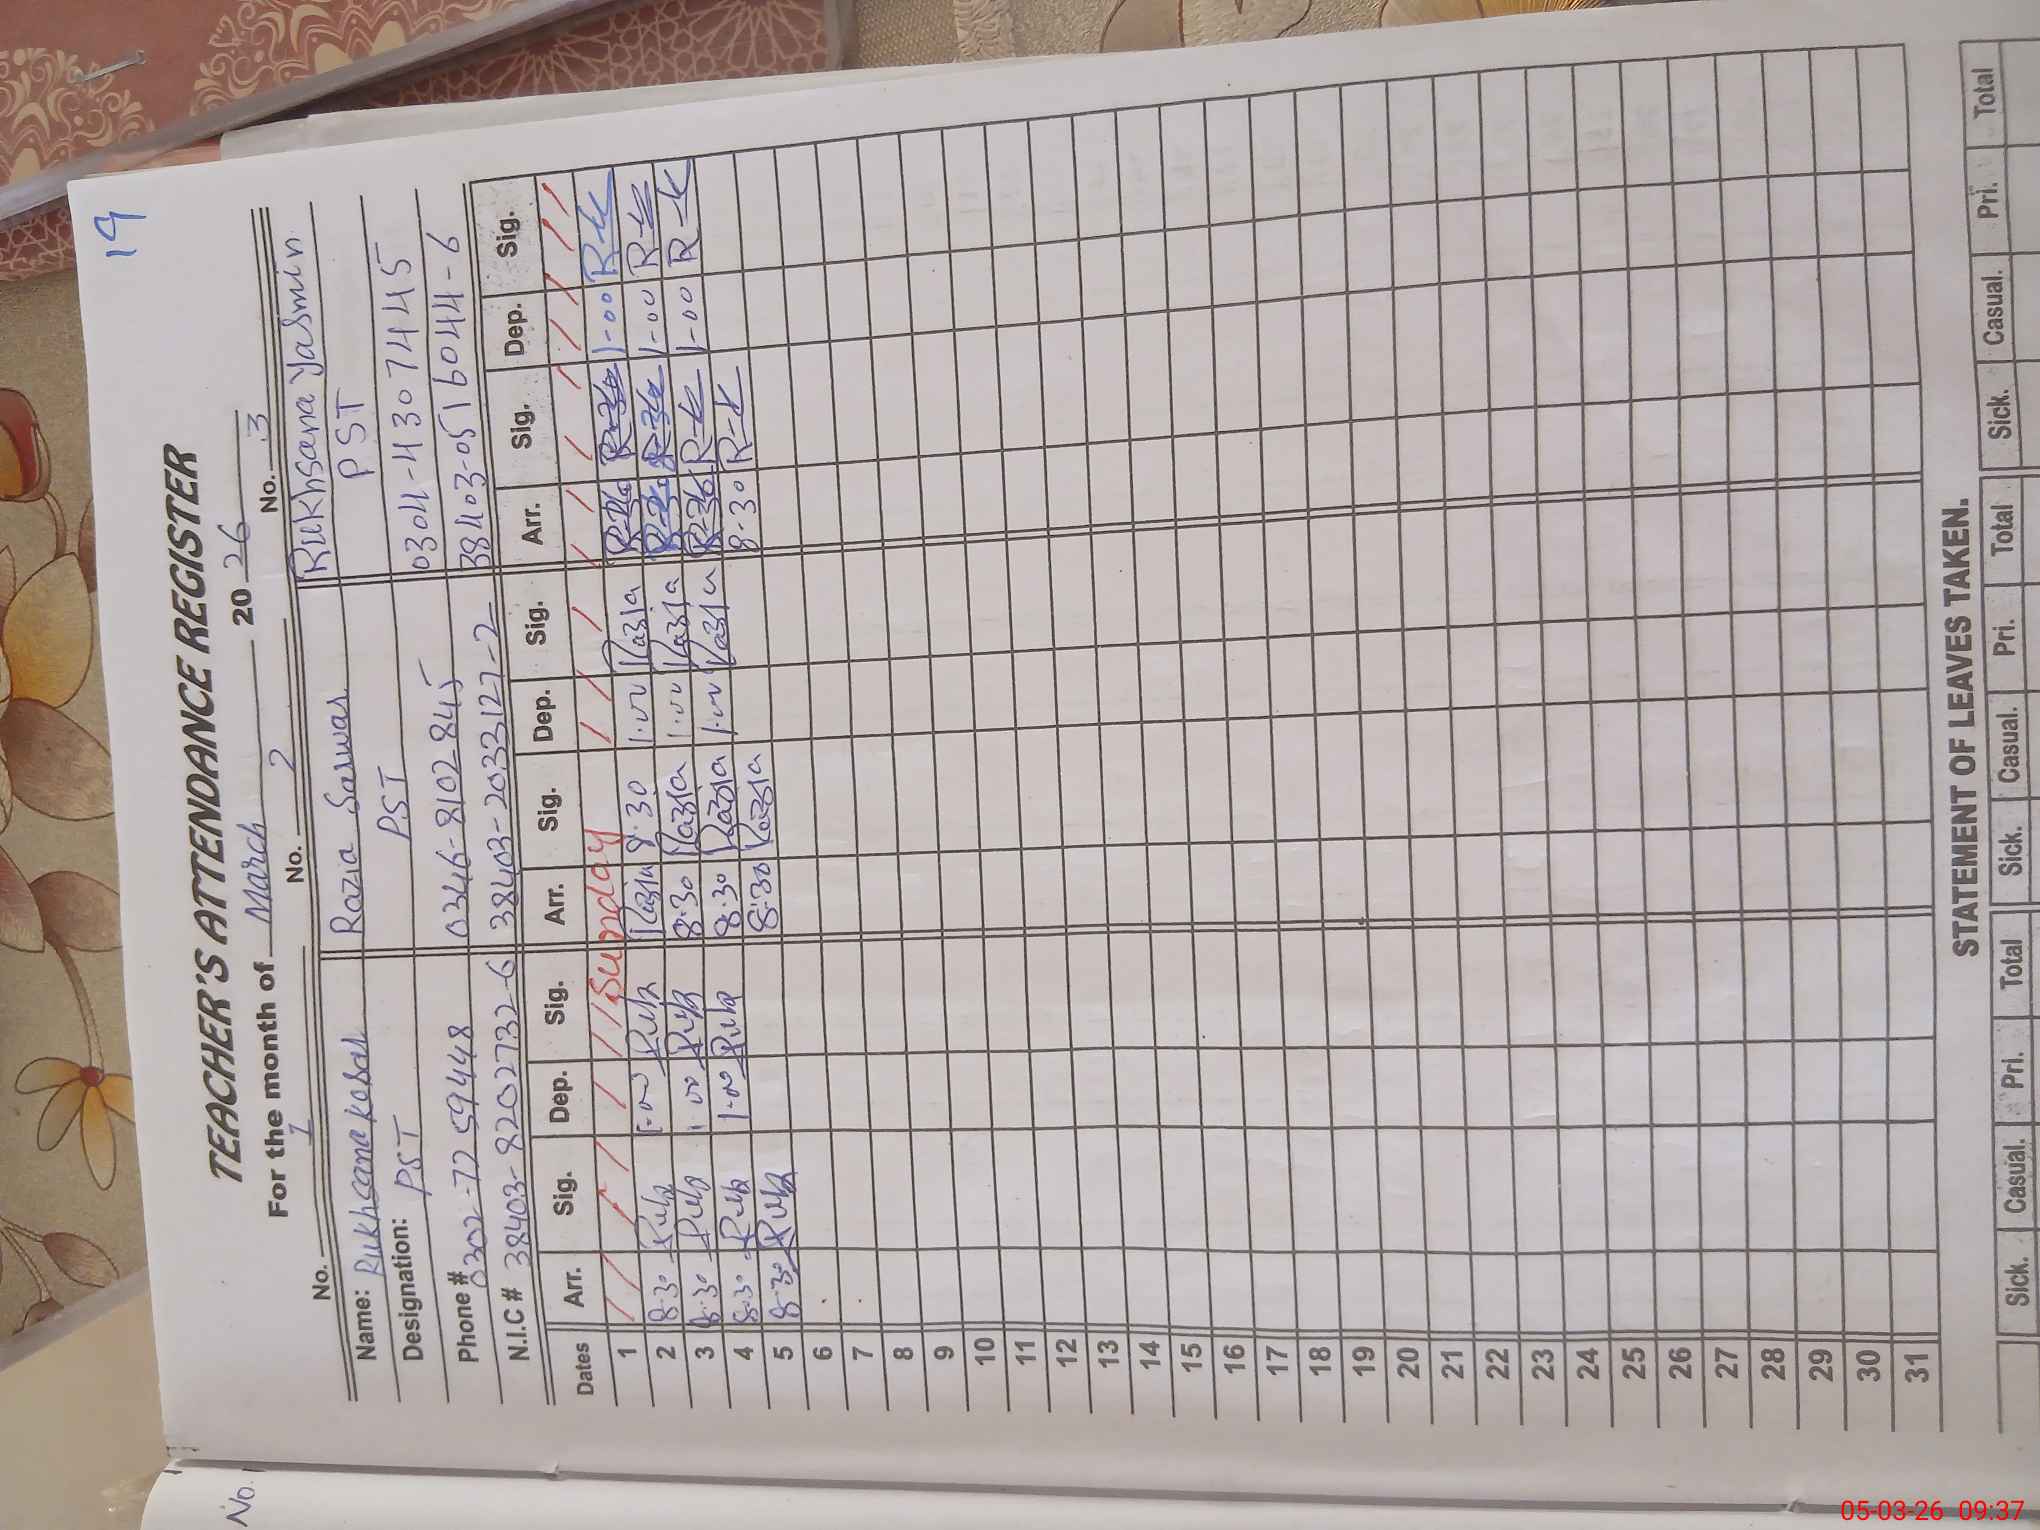 19
TEACHER'S ATTENDANCE REGISTER
For the month of March 2026
No. 1 No. 2 No. 3
Name: Rukhsana Kosar Razia Sarwar Rukhsana Yasmin
Designation: PST PST PST
Phone # 0302-7259448 0346-8102845 0304-4307445
N.I.C # 38403-8202732-6 38403-2033127-2 38403-0516044-6
Dates Arr. Sig. Dep. Sig. Arr. Sig. Dep. Sig. Arr. Sig. Dep. Sig.
1 Sunday
2 8.30 1.00 Razia 8.30 1.00 Razia 1-00 R-K
3 8.30 1.00 8.30 Razia 1.00 Razia 1-00 R-K
4 8.30 1.00 8.30 Razia 1.00 Razia R-K 1-00 R-K
5 8.30 8.30 Razia 8-30 R-K
6
7
8
9
10
11
12
13
14
15
16
17
18
19
20
21
22
23
24
25
26
27
28
29
30
31
STATEMENT OF LEAVES TAKEN.
Sick. Casual. Pri. Total Sick. Casual. Pri. Total Sick. Casual. Pri. Total
No.
05-03-26 09:37